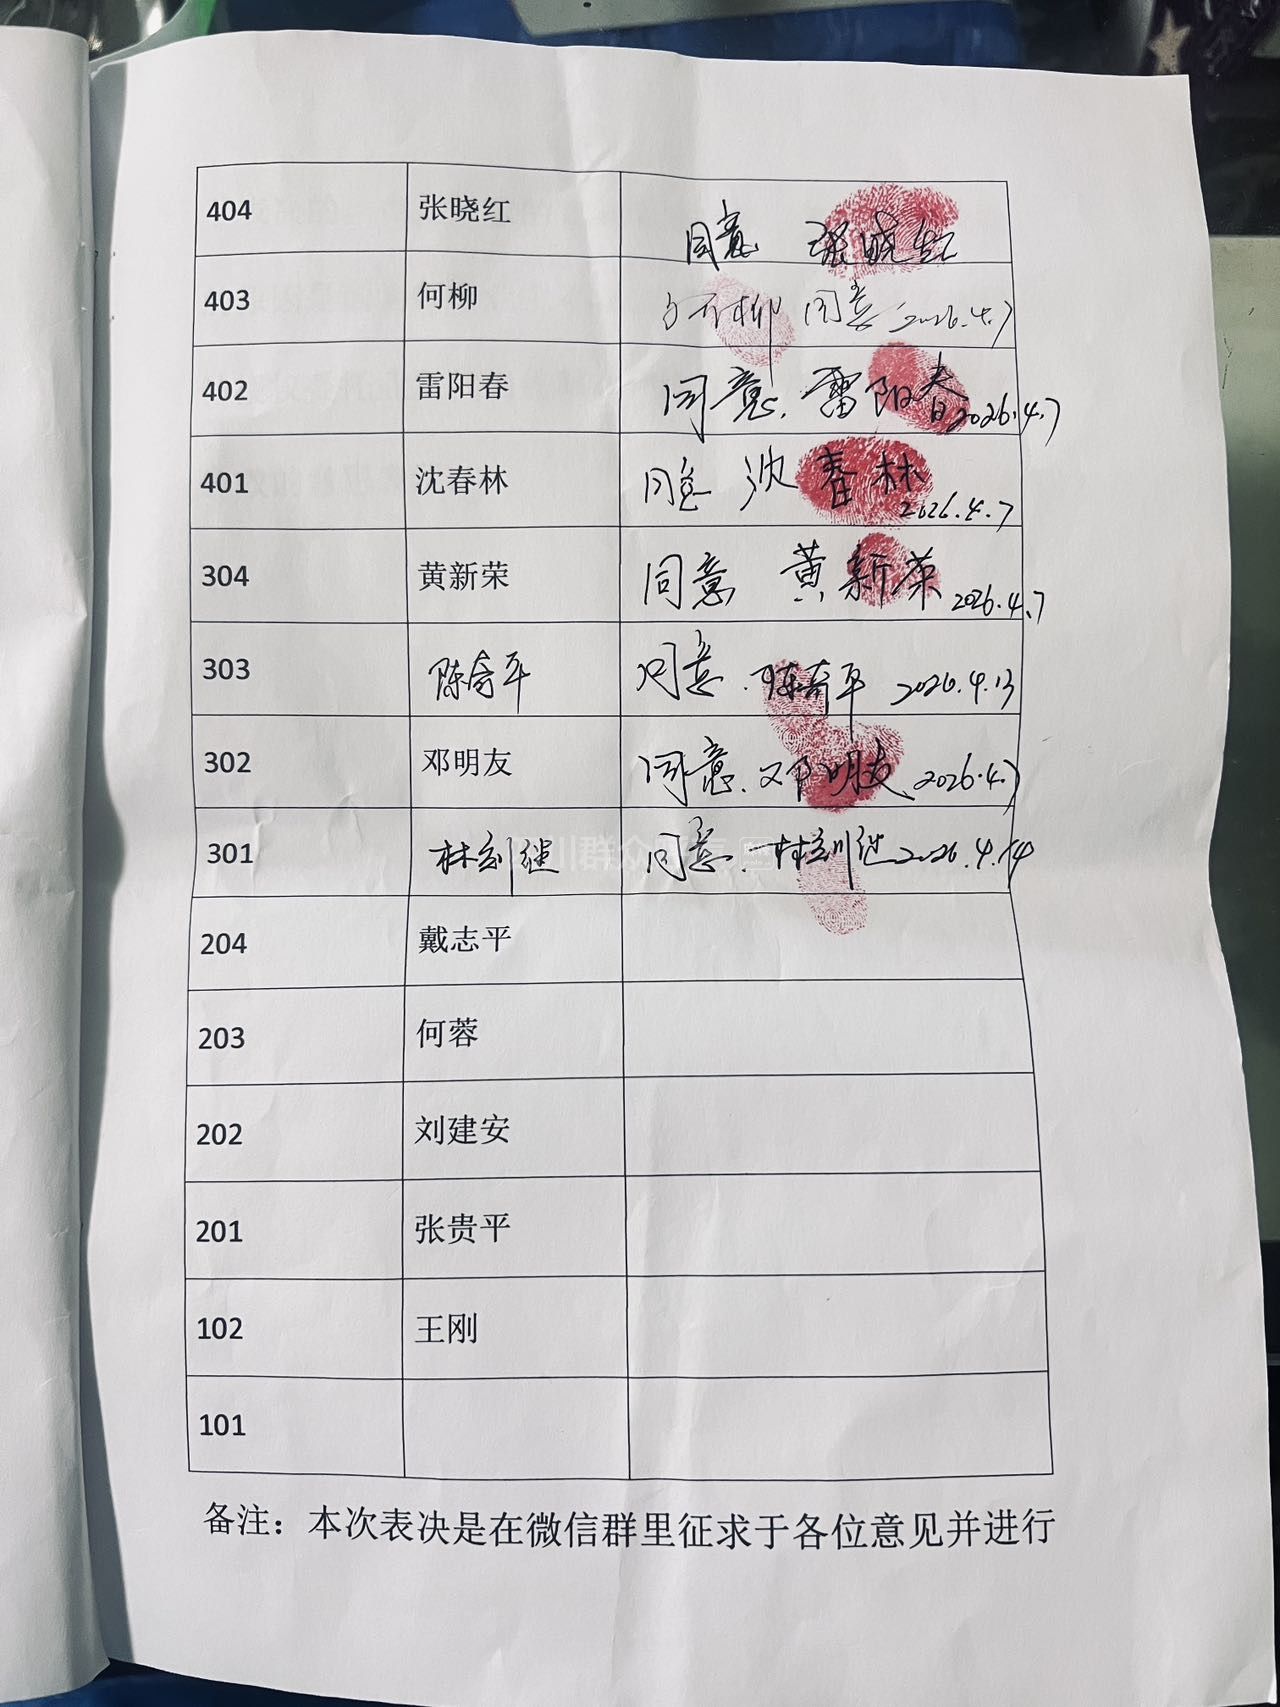 404 张晓红 同意 张晓红
403 何柳 何柳 同意 2026.4.7
402 雷阳春 同意. 雷阳春 2026.4.7
401 沈春林 同意 沈春林 2026.4.7
304 黄新荣 同意 黄新荣 2026.4.7
303 陈奇平 同意. 陈奇平 2026.4.13
302 邓明友 同意. 邓明友 2026.4.7
301 同意. 2026.4.14
204 戴志平
203 何蓉
202 刘建安
201 张贵平
102 王刚
101
备注：本次表决是在微信群里征求于各位意见并进行